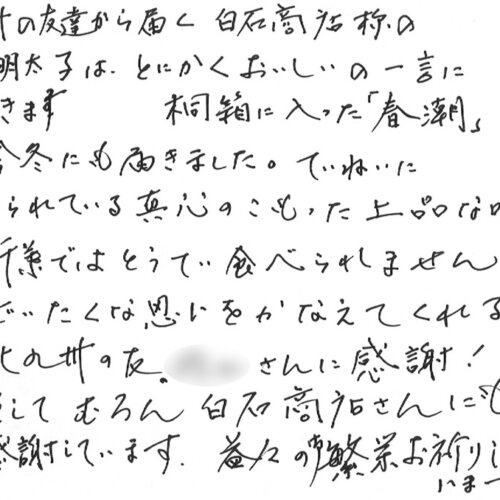 州の友達から届く 白石商店称の
明太子は、とにかくおいしいの一言に
きます 桐箱に入った「春潮」
今冬にも届きました。ていねいに
られている真心のこもった上品な
千葉ではとうてい食べられません
ぜいたくな思いをかなえてくれる
北九州の友、さんに感謝!
してむろん白石商店さんにも
感謝しています。益々の御繁栄お祈りし
います